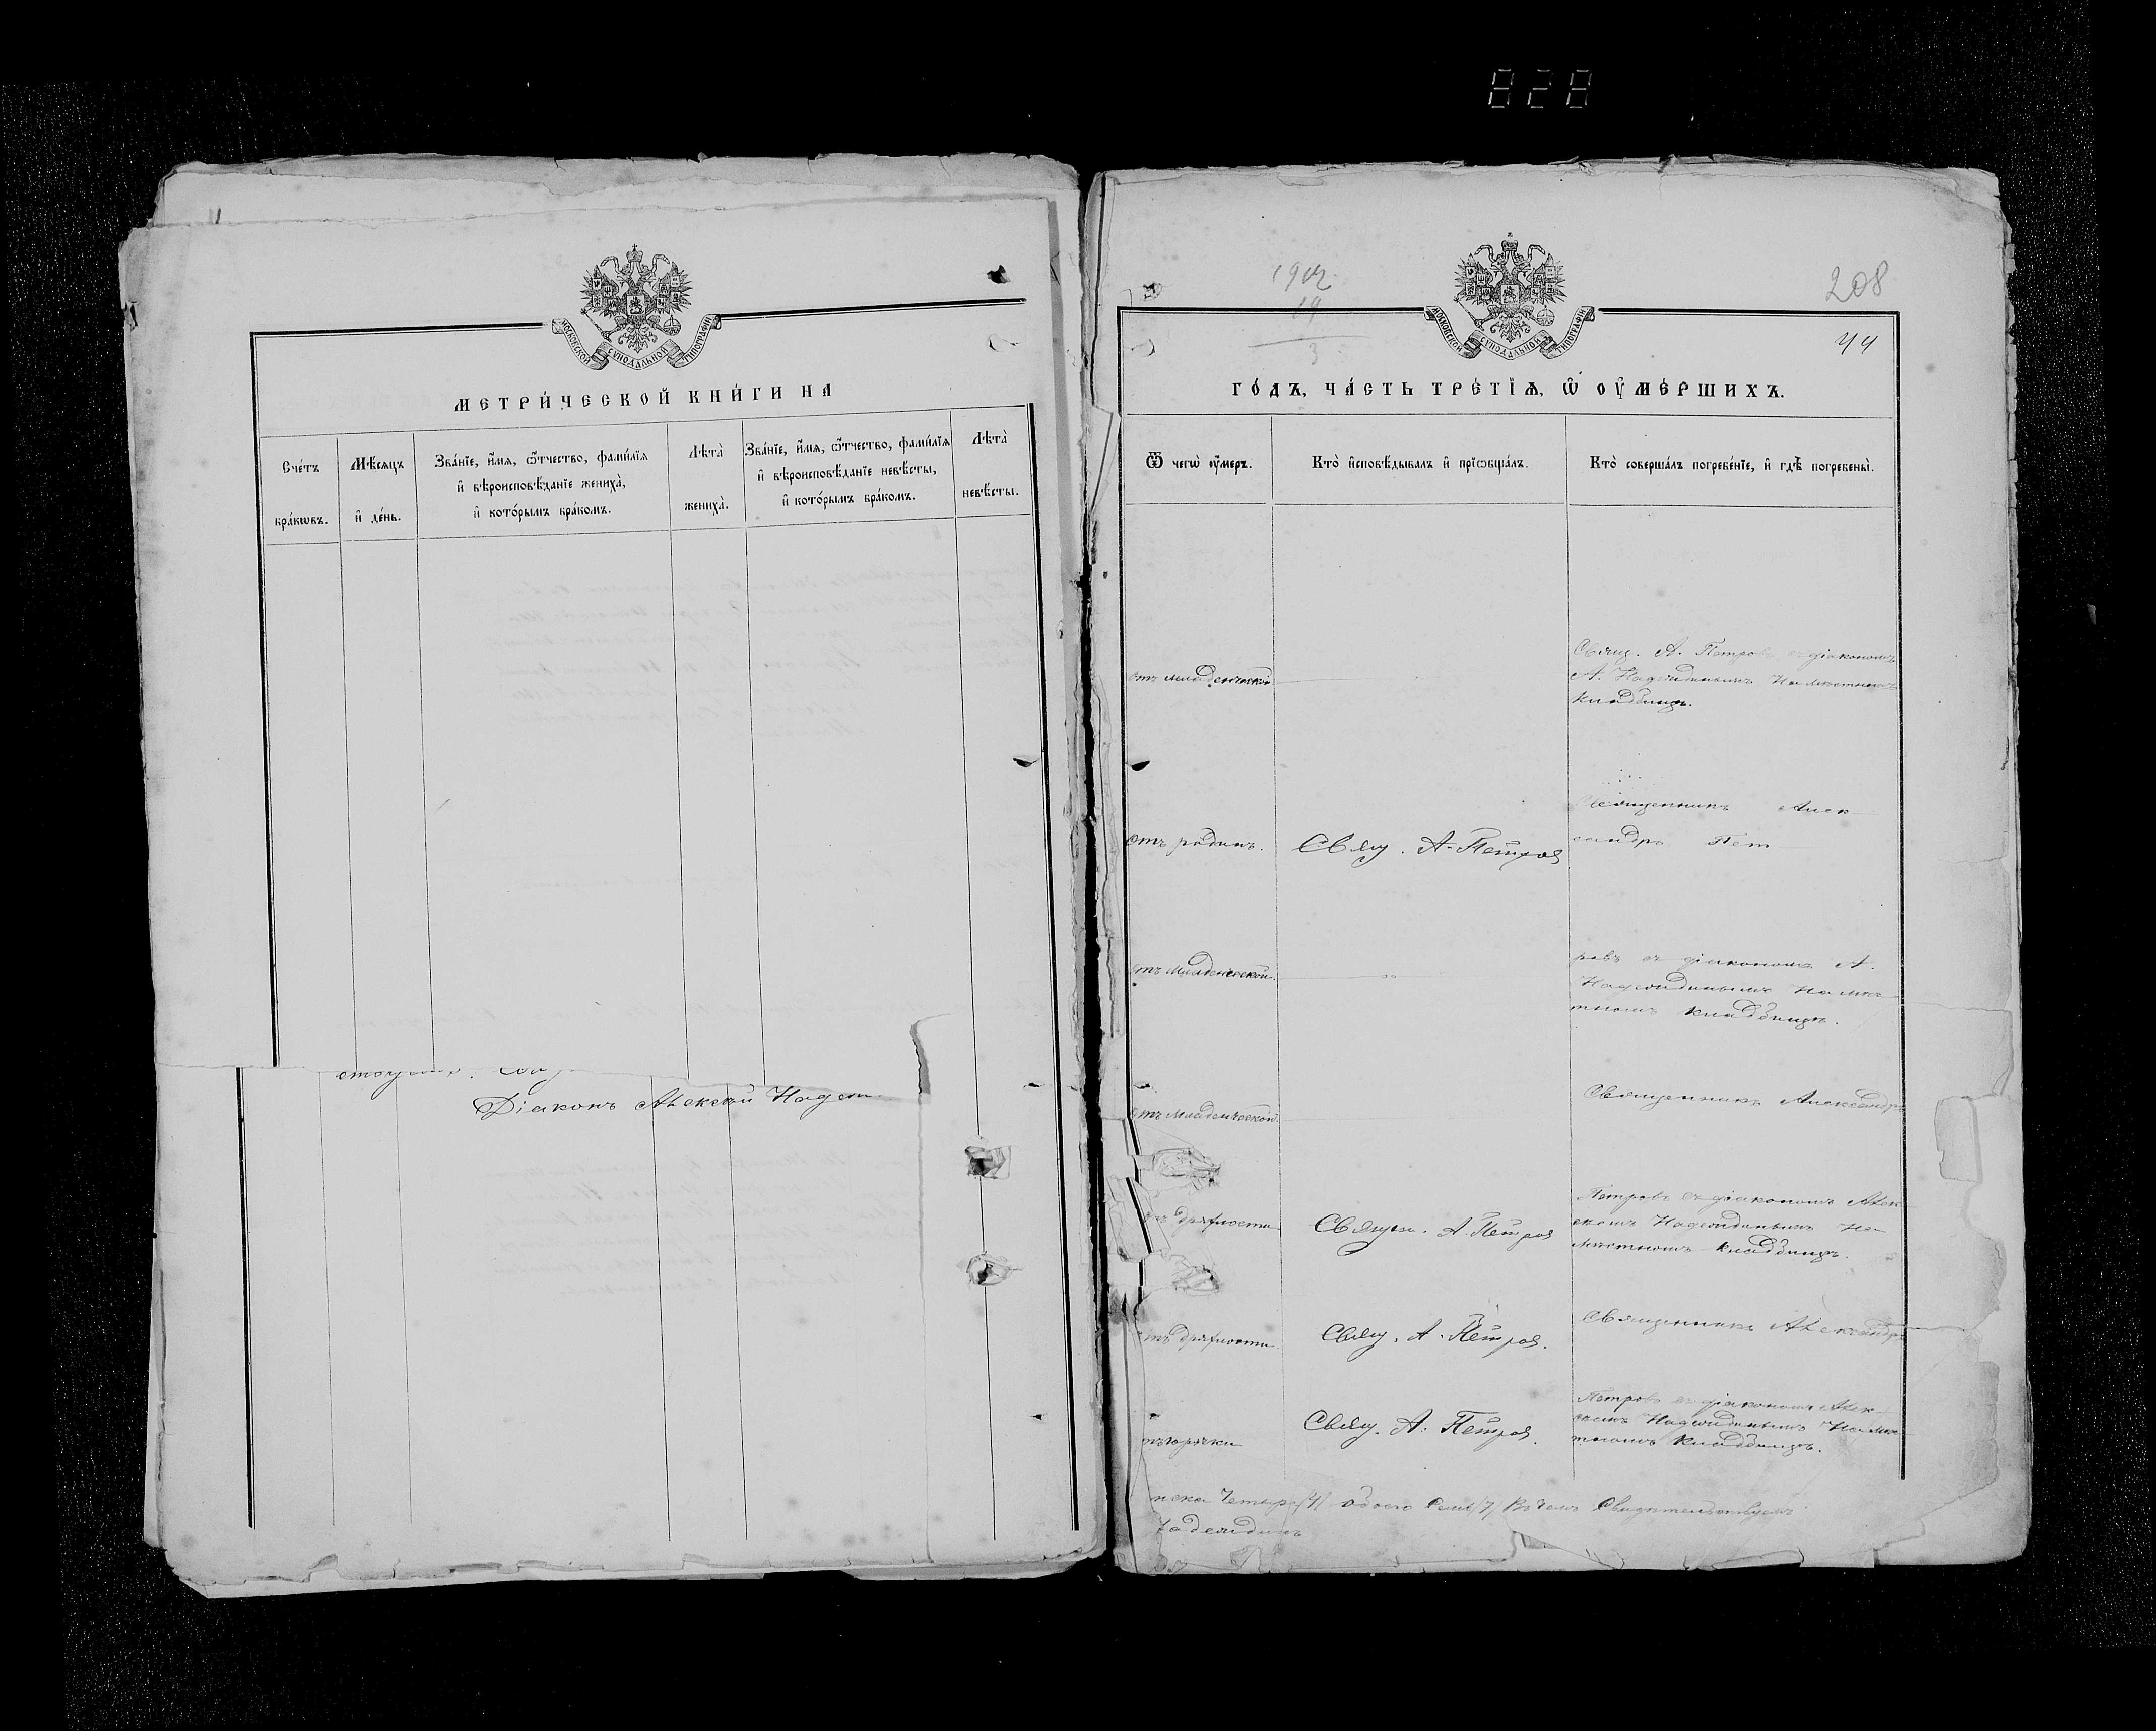 828
МОСКОВСКОЙ СѴНОДАЛЬНОЙ ТИПОГРАФІИ
МЕТРИ́ЧЕСКОЙ КНИ́ГИ НА
Сче́тъ бра́кѡвъ.
Мѣ́сяцъ и҆ де́нь.
Зва́нїе, и҆́мѧ, ѻ҆́тчество, фами́лїѧ
и҆ вѣроисповѣ́данїе жениха̀,
и҆ кото́рымъ бра́комъ.
Лѣта̀ жениха̀.
Зва́нїе, и҆́мѧ, ѻ҆́тчество, фами́лїѧ
и҆ вѣроисповѣ́данїе невѣ́сты,
и҆ кото́рымъ бра́комъ.
Лѣта̀ невѣ́сты.
Діаконъ Алексѣй
1902
19
3
208
44
МОСКОВСКОЙ СѴНОДАЛЬНОЙ ТИПОГРАФІИ
ГО́ДЪ, ЧА́СТЬ ТРЕ́ТЇѦ, Ѡ҆ ОУ҆МЕ́РШИХЪ.
Ѿ чегѡ̀ оу҆́меръ.
Кто̀ и҆сповѣ́дывалъ и҆ прїѡбща́лъ.
Кто̀ соверша́лъ погребе́нїе, и҆ гдѣ̀ погребены̀.
отъ младенческой
Свящ. А. Петровъ съ діакономъ
А. Надеждинымъ на мѣстномъ
кладбищѣ.
отъ родинъ.
Свящ. А. Петров
Священникъ Алек
сандръ Пет
отъ младенческой.
ровъ съ діакономъ А.
Надеждинымъ на мѣс
тномъ кладбищѣ.
отъ младенческой.
Священникъ Александръ
дряхлости
Священ. А. Петров
Петровъ съ діакономъ Алек
сѣемъ Надеждинымъ на
мѣстномъ кладбищѣ.
отъ дряхлости
Свящ. А. Петров.
Священникъ Александръ
горячки
Свящ. А. Петров.
Петровъ съ діакономъ Алек
сѣемъ Надеждинымъ на мѣс
тномъ кладбищѣ.
четыре /4/ обоего семь /7/ Въ чемъ свидѣтельствуемъ
Надеждинъ